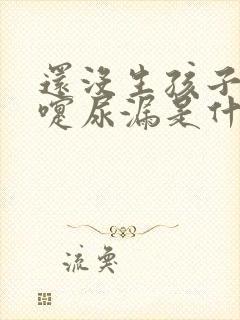 還沒生孩子
嚏尿漏是什
流奧